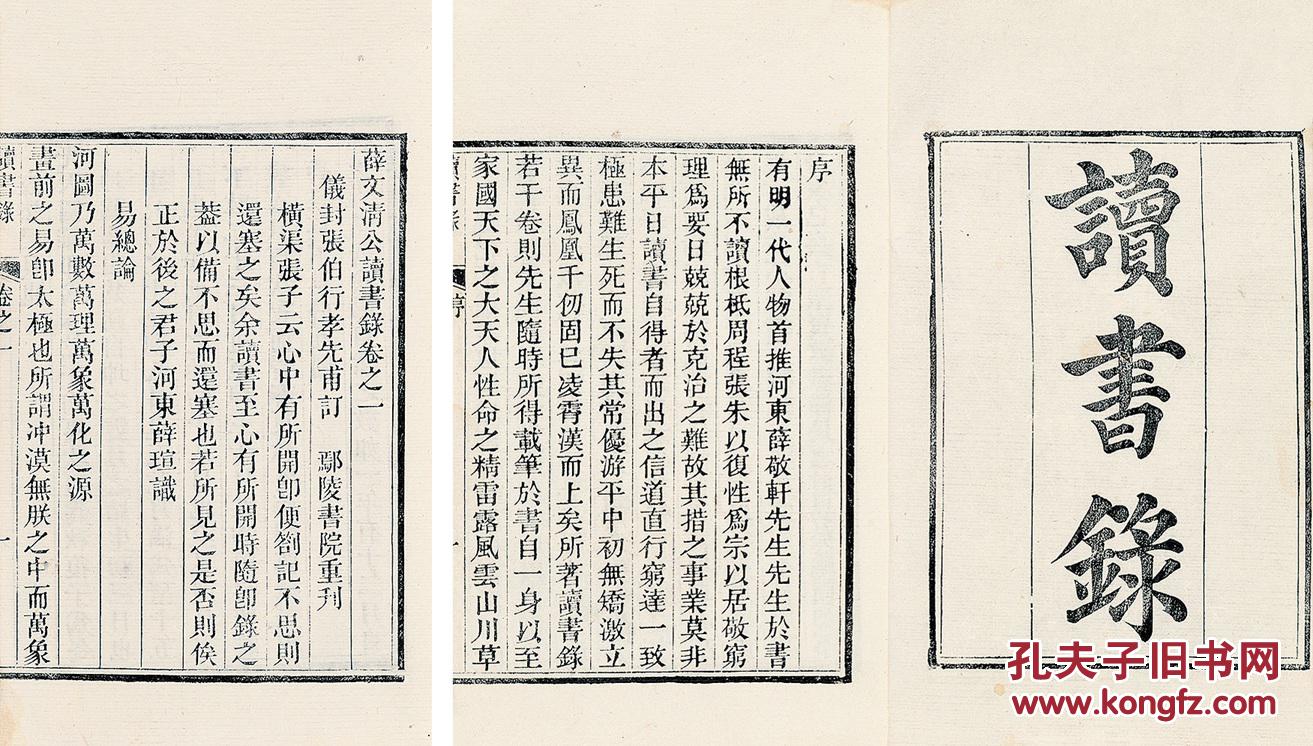 讀書錄
序
有明一代人物首推河東薛敬軒先生先生於書
無所不讀根柢周程張朱以復性爲宗以居敬窮
理爲要日兢兢於克治之難故其措之事業莫非
本平日讀書自得者而出之信道直行窮達一致
極患難生死而不失其常優游平中初無矯激立
異而鳳凰千仞固已凌霄漢而上矣所著讀書錄
若干卷則先生隨時所得載筆於書自一身以至
家國天下之大天人性命之精雷露風雲山川草
讀書錄
序
一
薛文清公讀書錄卷之一
儀封張伯行孝先甫訂 鄢陵書院重刊
橫渠張子云心中有所開卽便劄記不思則
還塞之矣余讀書至心有所開時隨卽錄之
葢以備不思而還塞也若所見之是否則俟
正於後之君子河東薛瑄識
易總論
河圖乃萬數萬理萬象萬化之源
畫前之易卽太極也所謂冲漠無朕之中而萬象
讀書錄
卷之一
一
孔夫子旧书网
www.kongfz.com